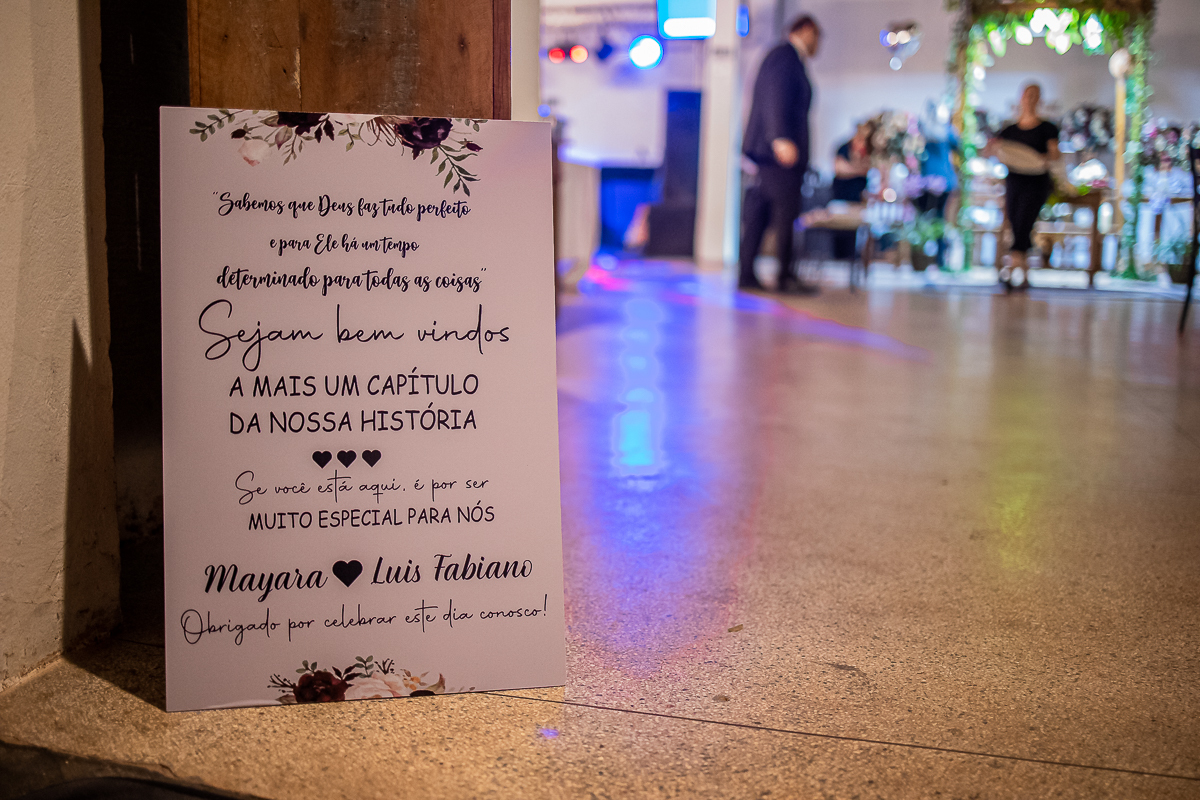 "Sabemos que Deus faz tudo perfeito
e para Ele há um tempo
determinado para todas as coisas"
Sejam bem vindos
A MAIS UM CAPÍTULO
DA NOSSA HISTÓRIA
Se você está aqui, é por ser
MUITO ESPECIAL PARA NÓS
Mayara ♥ Luis Fabiano
Obrigado por celebrar este dia conosco!